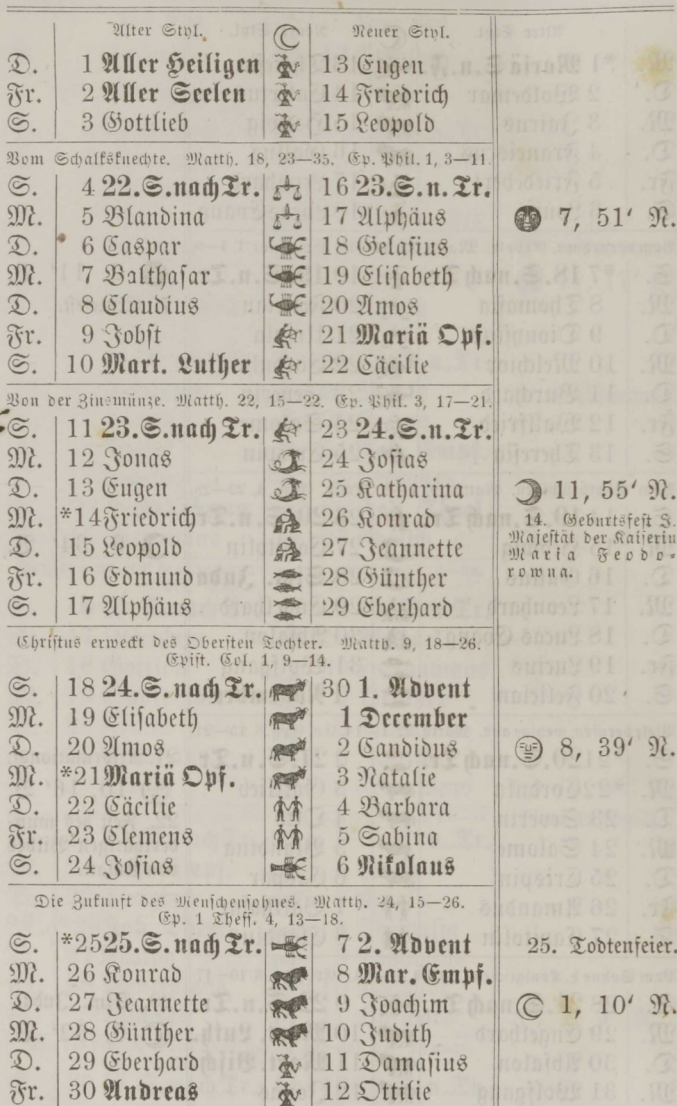 Alter Styl. ☾ Neuer Styl.
D. 1 Aller Heiligen 13 Eugen
Fr. 2 Aller Seelen 14 Friedrich
S. 3 Gottlieb 15 Leopold
Vom Schalksknechte. Matth. 18, 23—35. Ep. Phil. 1, 3—11.
S. 4 22. S. nach Tr. 16 23. S. n. Tr.
M. 5 Blandina 17 Alphäus 7, 51′ N.
D. 6 Caspar 18 Gelasius
M. 7 Balthasar 19 Elisabeth
D. 8 Claudius 20 Amos
Fr. 9 Jobst 21 Mariä Opf.
S. 10 Mart. Luther 22 Cäcilie
Von der Zinsmünze. Matth. 22, 15—22. Ep. Phil. 3, 17—21.
S. 11 23. S. nach Tr. 23 24. S. n. Tr.
M. 12 Jonas 24 Josias
D. 13 Eugen 25 Katharina ☽ 11, 55′ N.
M. *14 Friedrich 26 Konrad
D. 15 Leopold 27 Jeannette
Fr. 16 Edmund 28 Günther
S. 17 Alphäus 29 Eberhard
14. Geburtsfest J.
Majestät der Kaiserin
Maria Feodo-
rowna.
Christus erweckt des Obersten Tochter. Matth. 9, 18—26.
Epist. Col. 1, 9—14.
S. 18 24. S. nach Tr. 30 1. Advent
M. 19 Elisabeth 1 December
D. 20 Amos 2 Candidus 8, 39′ N.
M. *21 Mariä Opf. 3 Natalie
D. 22 Cäcilie 4 Barbara
Fr. 23 Clemens 5 Sabina
S. 24 Josias 6 Nikolaus
Die Zukunft des Menschensohnes. Matth. 24, 15—26.
Ep. 1 Thess. 4, 13—18.
S. *25 25. S. nach Tr. 7 2. Advent 25. Todtenfeier.
M. 26 Konrad 8 Mar. Empf.
D. 27 Jeannette 9 Joachim ☾ 1, 10′ N.
M. 28 Günther 10 Judith
D. 29 Eberhard 11 Damasius
Fr. 30 Andreas 12 Ottilie